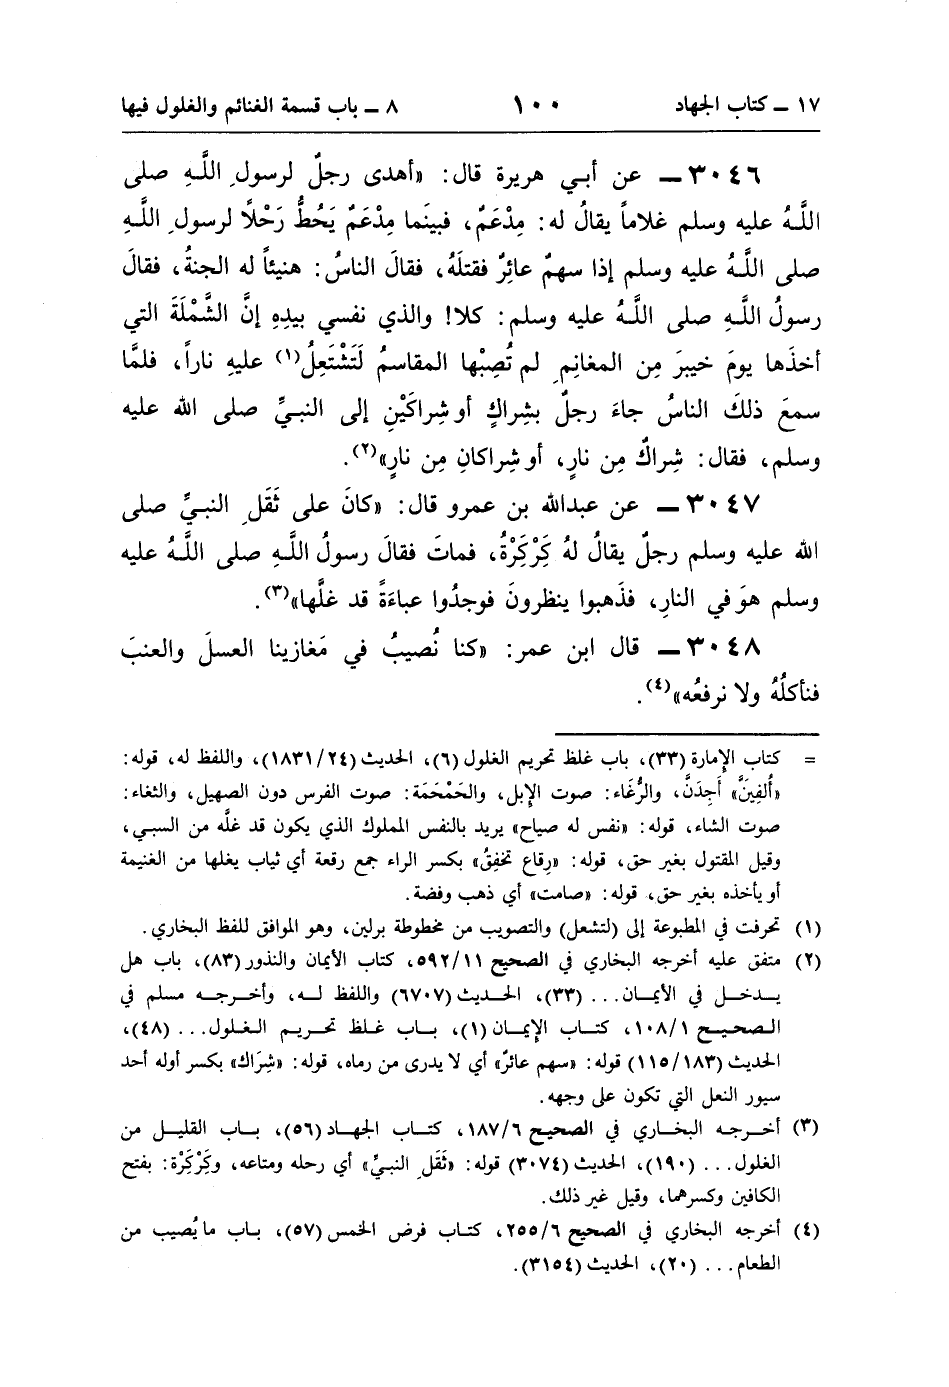 ١٧ ـ كتاب الجهاد ١٠٠ ٨ ـ باب قسمة الغنائم والغلول فيها
٣٠٤٦ ـ عن أبي هريرة قال: «أهدى رجلٌ لرسولِ اللَّهِ صلى
اللَّهُ عليه وسلم غلاماً يقالُ له: مِدْعَمٌ، فبينَما مِدْعَمٌ يَحُطُّ رَحْلاً لرسولِ اللَّهِ
صلى اللَّهُ عليه وسلم إذا سهمٌ عائِرٌ فقتلَهُ، فقالَ الناسُ: هنيئاً له الجنةُ، فقالَ
رسولُ اللَّهِ صلى اللَّهُ عليه وسلم: كلا! والذي نفسي بيدِهِ إنَّ الشَّمْلَةَ التي
أخذَها يومَ خيبرَ مِن المغانِمِ لم تُصِبْها المقاسمُ لَتَشْتَعِلُ(١) عليهِ ناراً، فلمَّا
سمعَ ذلكَ الناسُ جاءَ رجلٌ بشِراكٍ أو شِراكَيْنِ إلى النبيِّ صلى الله عليه
وسلم، فقال: شِراكٌ مِن نارٍ، أو شِراكانِ مِن نارٍ»(٢).
٣٠٤٧ ـ عن عبدالله بن عمرو قال: «كانَ على ثَقَلِ النبيِّ صلى
الله عليه وسلم رجلٌ يقالُ لهُ كَرْكَرْةُ، فماتَ فقالَ رسولُ اللَّهِ صلى اللَّهُ عليه
وسلم هوَ في النارِ، فذَهبوا ينظرونَ فوجدُوا عباءَةً قد غلَّها»(٣).
٣٠٤٨ ـ قال ابن عمر: «كنا نُصيبُ في مَغازينا العسلَ والعنبَ
فنأكلُهُ ولا نرفعُه»(٤).
= كتاب الإمارة (٣٣)، باب غلظ تحريم الغلول (٦)، الحديث (١٨٣١/٢٤)، واللفظ له، قوله:
«أُلفِينَّ» أَجِدَنَّ، والرُّغَاء: صوت الإبل، والحَمْحَمَة: صوت الفرس دون الصهيل، والثغاء:
صوت الشاء، قوله: «نفس له صياح» يريد بالنفس المملوك الذي يكون قد غلَّه من السبي،
وقيل المقتول بغير حق، قوله: «رِقاع تخفِقُ» بكسر الراء جمع رقعة أي ثياب يغلها من الغنيمة
أو يأخذه بغير حق، قوله: «صامت» أي ذهب وفضة.
(١) تحرفت في المطبوعة إلى (لتشعل) والتصويب من مخطوطة برلين، وهو الموافق للفظ البخاري.
(٢) متفق عليه أخرجه البخاري في الصحيح ٥٩٢/١١، كتاب الأيمان والنذور (٨٣)، باب هل
يدخل في الأيمان... (٣٣)، الحديث (٦٧٠٧) واللفظ له، وأخرجه مسلم في
الصحيح ١٠٨/١، كتاب الإيمان (١)، باب غلظ تحريم الغلول... (٤٨)،
الحديث (١١٥/١٨٣) قوله: «سهم عائر» أي لا يدرى من رماه، قوله: «شِرَاك» بكسر أوله أحد
سيور النعل التي تكون على وجهه.
(٣) أخرجه البخاري في الصحيح ١٨٧/٦، كتاب الجهاد (٥٦)، باب القليل من
الغلول... (١٩٠)، الحديث (٣٠٧٤) قوله: «ثَقَلِ النبيِّ» أي رحله ومتاعه، وكَرْكَرْة: بفتح
الكافين وكسرهما، وقيل غير ذلك.
(٤) أخرجه البخاري في الصحيح ٢٥٥/٦، كتاب فرض الخمس (٥٧)، باب ما يُصيب من
الطعام... (٢٠)، الحديث (٣١٥٤).